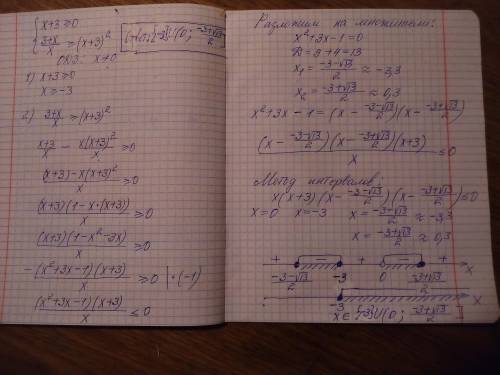 { x+3 ≥ 0
{ (3+x)/x ≥ (x+3)²
ОДЗ: x≠0
{-3}∪(0; (-3+√13)/2]
1) x+3 ≥ 0
x ≥ -3
2) (3+x)/x ≥ (x+3)²
(x+3)/x - x(x+3)²/x ≥ 0
((x+3) - x(x+3)²)/x ≥ 0
(x+3)(1-x·(x+3))/x ≥ 0
(x+3)(1-x²-3x)/x ≥ 0
-(x²+3x-1)(x+3)/x ≥ 0 |·(-1)
(x²+3x-1)(x+3)/x ≤ 0
Разложим на множители:
x²+3x-1=0
D=9+4=13
x₁ = (-3-√13)/2 ≈ -3,3
x₂ = (-3+√13)/2 ≈ 0,3
x²+3x-1 = (x - (-3-√13)/2)(x - (-3+√13)/2)
(x - (-3-√13)/2)(x - (-3+√13)/2)(x+3)/x ≤ 0
Метод интервалов:
x(x+3)(x - (-3-√13)/2)(x - (-3+√13)/2) ≤ 0
x=0 x=-3 x = (-3-√13)/2 ≈ -3,3
x = (-3+√13)/2 ≈ 0,3
+ - + - + x
(-3-√13)/2 -3 0 (-3+√13)/2
-3 x
x∈{-3}∪(0; (-3+√13)/2]